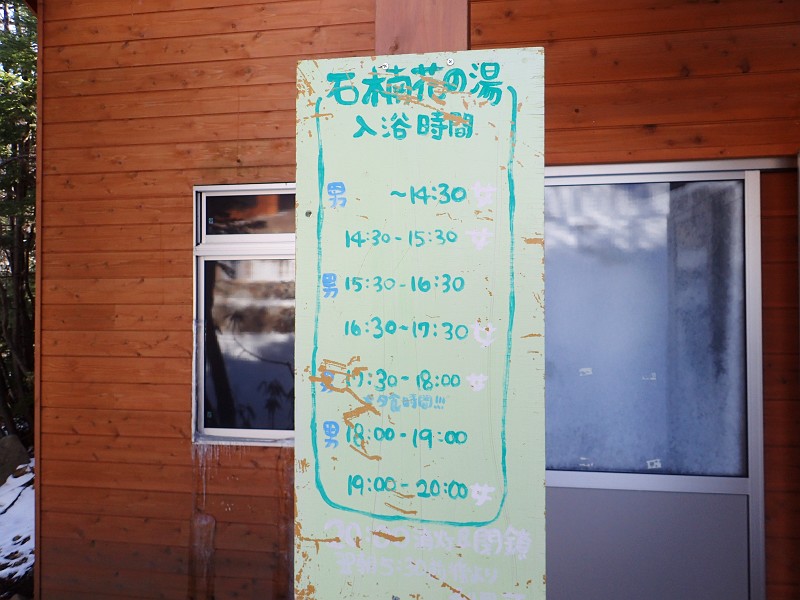 石楠花の湯
入浴時間
男 ～14:30 女
14:30-15:30 女
男 15:30-16:30
16:30～17:30 女
男 17:30-18:00 女
夕食時間!!!
男 18:00-19:00
19:00-20:00 女
閉鎖
より